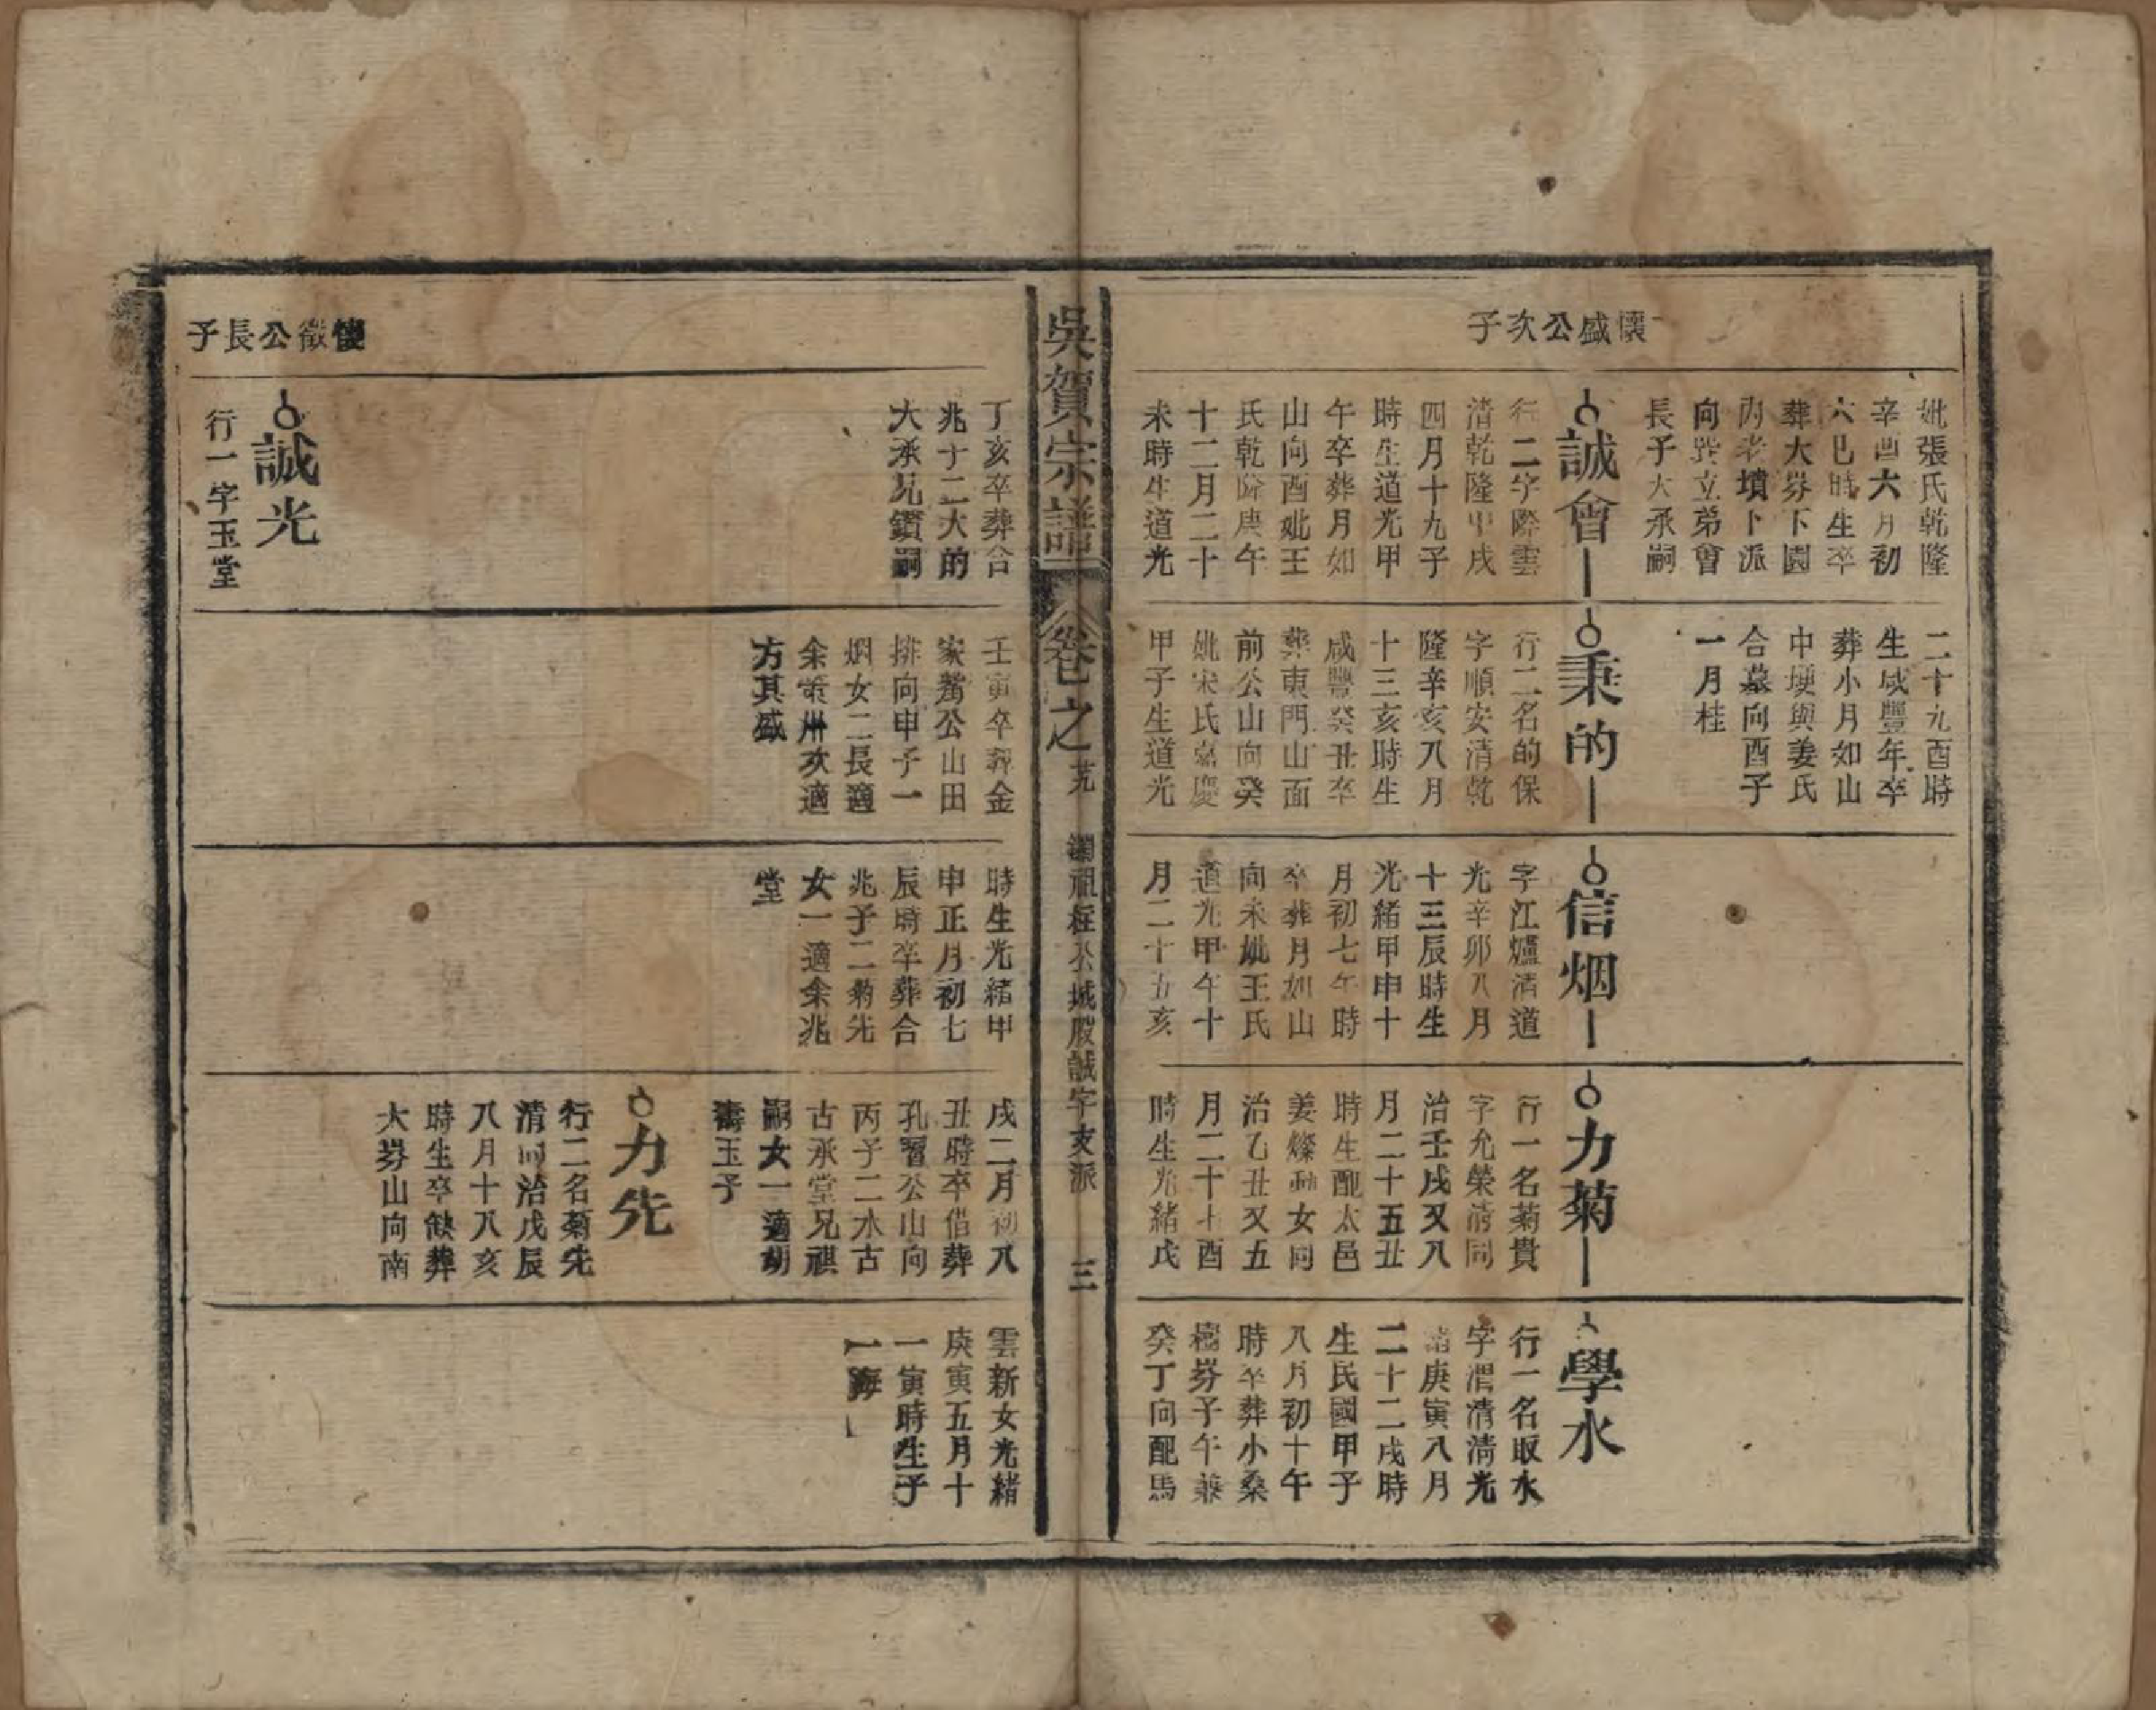 懷盛公次子
妣張氏乾隆
辛酉六月初
六巳時生卒
葬大磱下園
內老墳卜派
向巽立弟會
長子大承嗣
誠會
行二字際雲
清乾隆甲戌
四月十九子
時生道光甲
午卒葬月如
山向酉妣王
氏乾隆庚午
十二月二十
未時生道光
二十九酉時
生咸豐年卒
葬小月如山
中埂與姜氏
合墓向酉子
一月桂
秉的
行二名的保
字順安清乾
隆辛亥八月
十三亥時生
咸豐癸丑卒
葬東門山面
前公山向癸
妣宋氏嘉慶
甲子生道光
信烟
字江爐清道
光辛卯八月
十三辰時生
光緒甲申十
月初七午時
卒葬月如山
向未妣王氏
道光甲午十
月二十五亥
力菊
行一名菊貴
字允榮清同
治壬戌又八
月二十五丑
時生配太邑
姜燦 女同
治乙丑又五
月二十七酉
時生光緒戊
學水
行一名取水
字渭清清光
緒庚寅八月
二十二戌時
生民國甲子
八月初十午
時卒葬小桑
樹磱子午兼
癸丁向配馬
吳賀宗譜
卷之
祖 公城股誠字支派
三
懷徵公長子
丁亥卒葬合
兆子二大的
大承兄鑽嗣
誠光
行一字玉堂
壬寅卒葬金
家 公山田
排向申子一
烟女二長適
余策州次適
方其盛
時生光緒甲
申正月初七
辰時卒葬合
兆子二菊先
女一適余兆
堂
戌二月初八
丑時卒借葬
孔習公山向
丙子二水古
古承堂兄祺
嗣女一適胡
壽玉子
力先
行二名菊先
清同治戊辰
八月十八亥
時生卒缺葬
大磱山向南
雲新女光緒
庚寅五月十
一寅時生子
一海